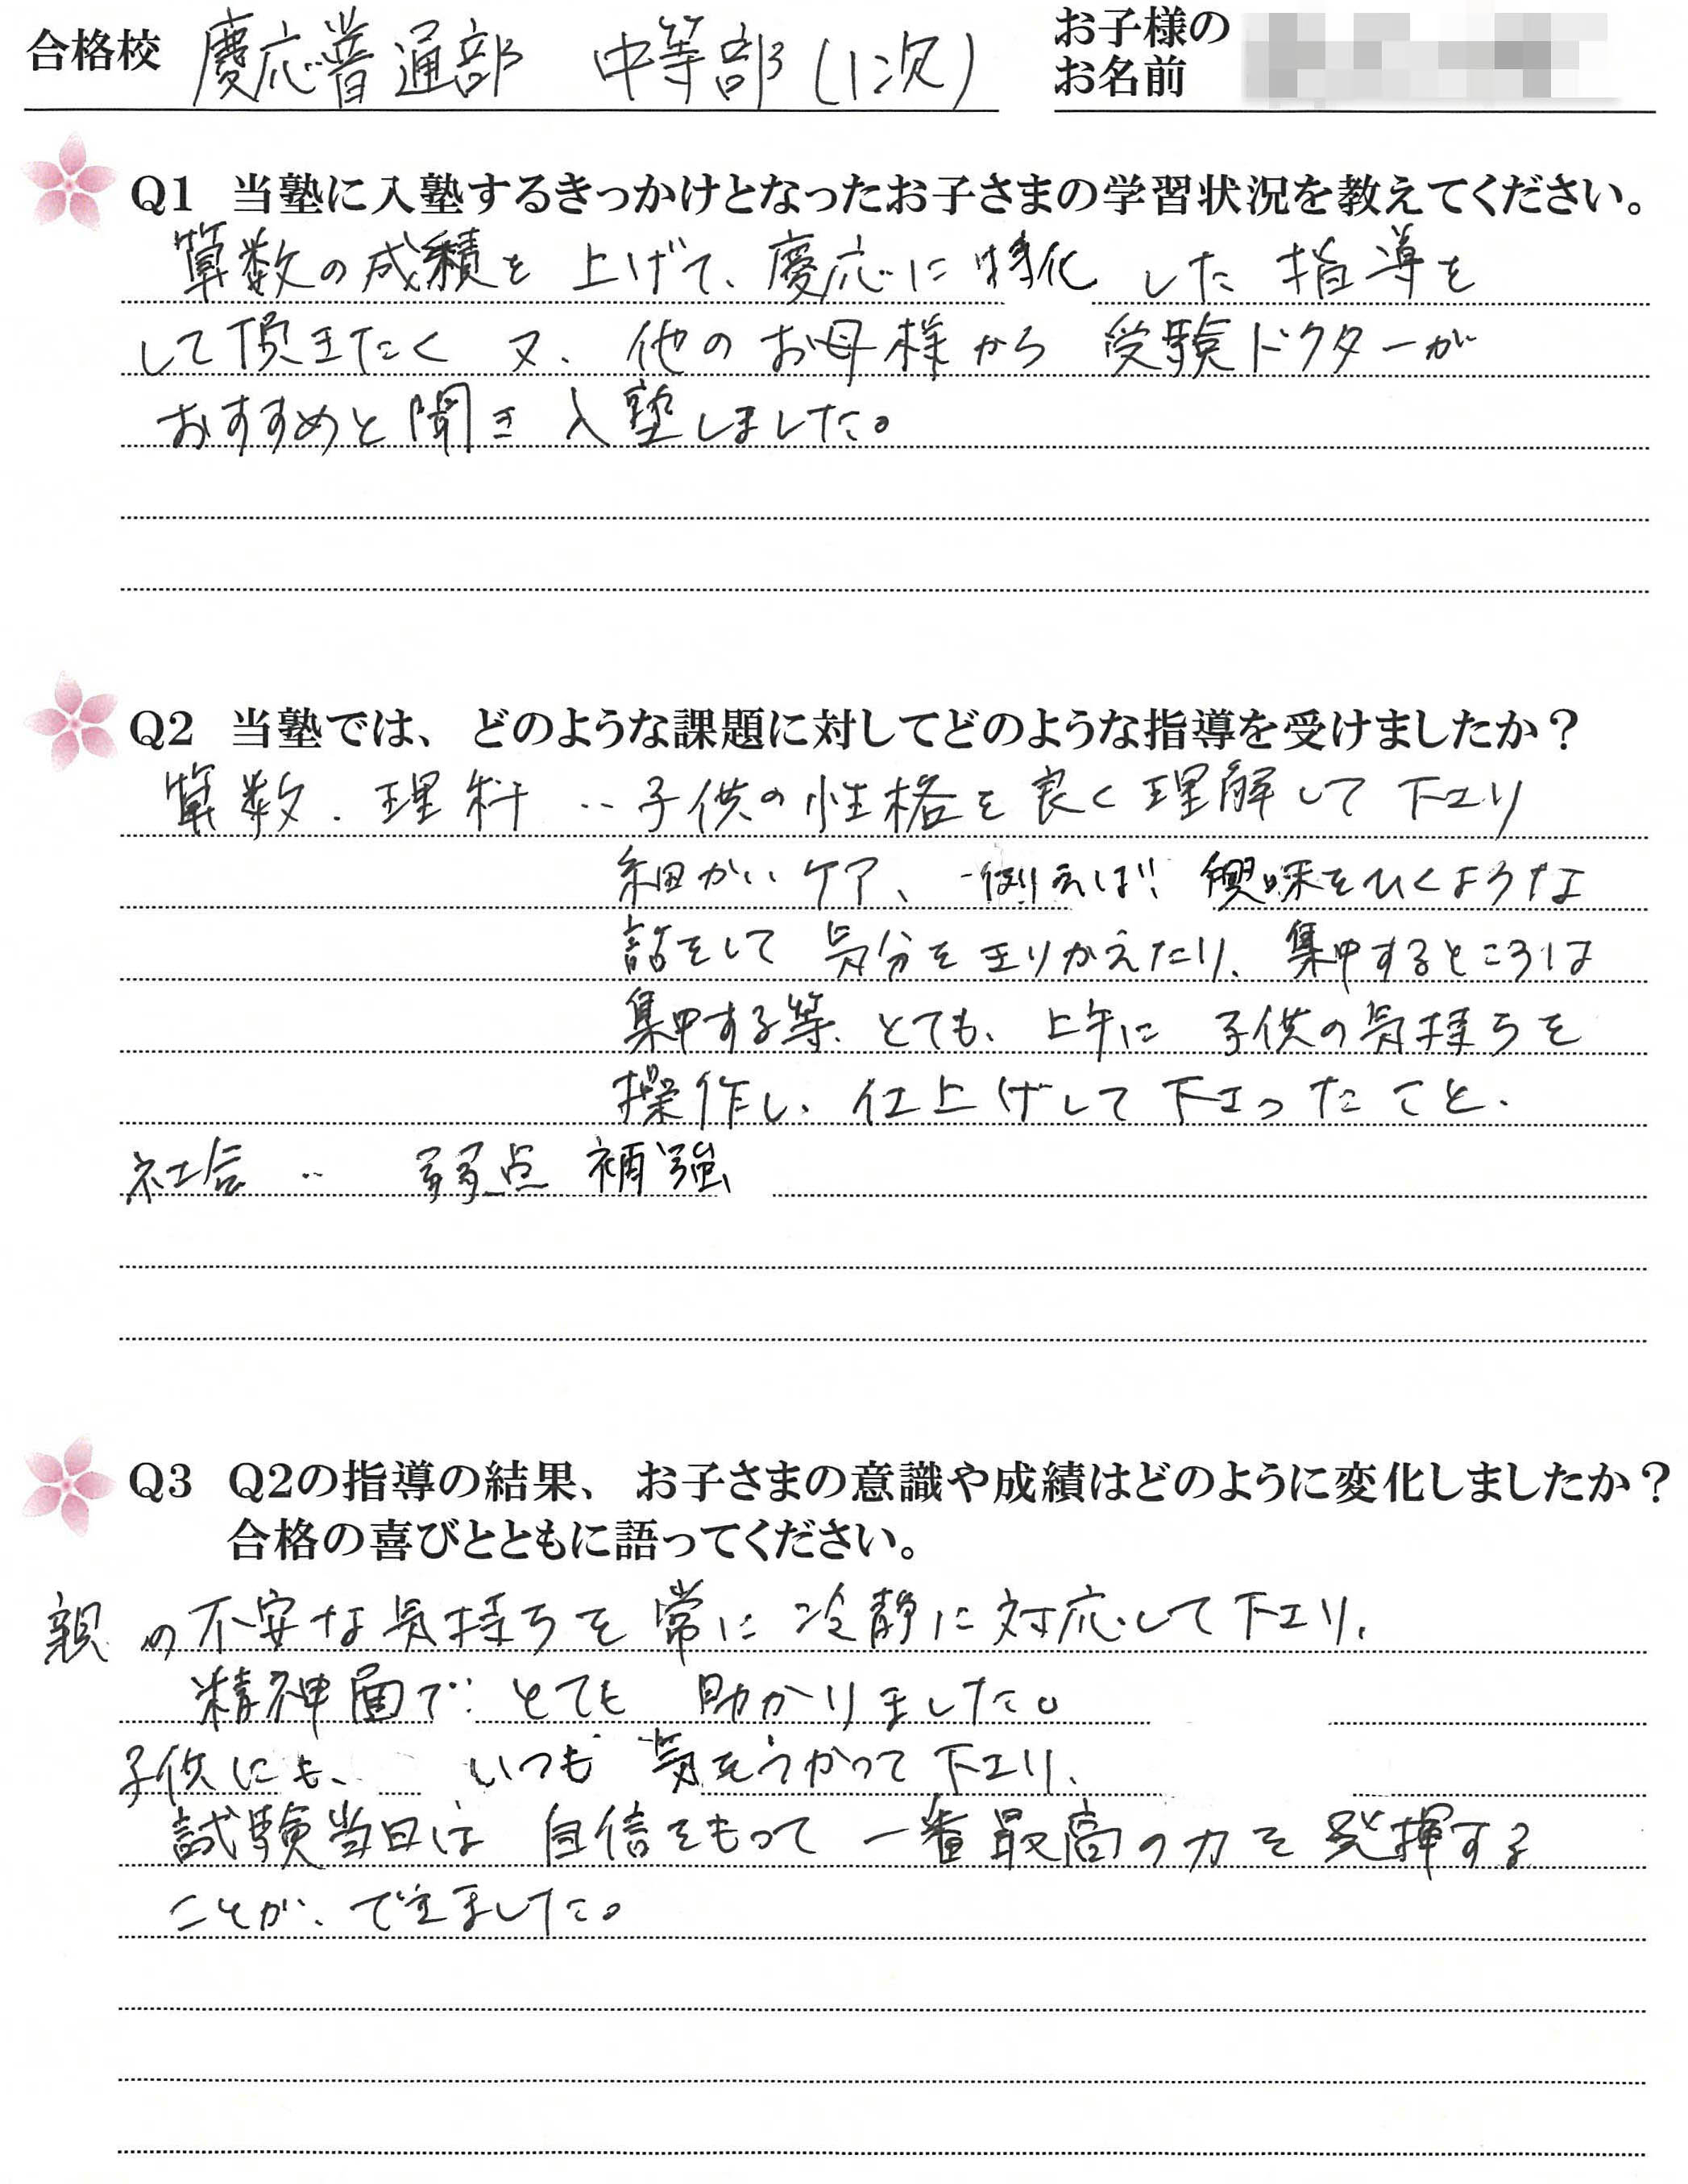 合格校 慶応普通部 中等部(1次)
お子様の
お名前
Q1 当塾に入塾するきっかけとなったお子さまの学習状況を教えてください。
算数の成績を上げて、慶応に特化した指導を
して頂きたく 又、他のお母様から受験ドクターが
おすすめと聞き入塾しました。
Q2 当塾では、どのような課題に対してどのような指導を受けましたか？
算数．理科 ‥子供の性格を良く理解して下さり
細かいケア、例えば 興味をひくような
話をして 気分を切りかえたり、集中するところは
集中する等、とても、上手に 子供の気持ちを
操作し、仕上げして下さったこと、
社会 ‥ 弱点 補強
Q3 Q2の指導の結果、お子さまの意識や成績はどのように変化しましたか？
合格の喜びとともに語ってください。
親の不安な気持ちを常に冷静に対応して下さり、
精神面で とても 助かりました。
子供にも、いつも 気をつかって下さり、
試験当日は 自信をもって一番最高の力を発揮する
ことが、できました。